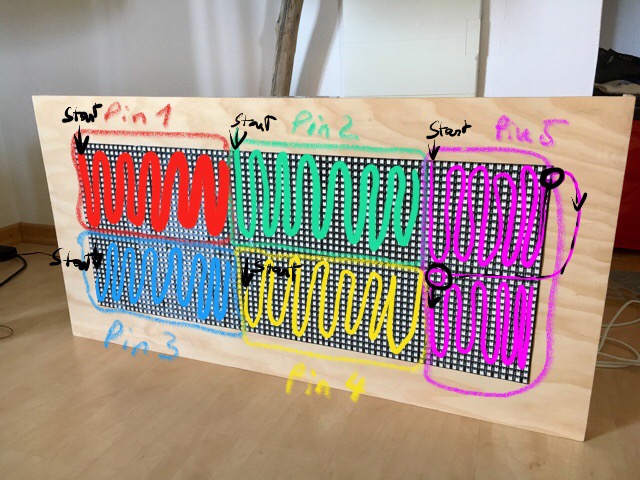 Start Pin 1
Start Pin 2
Start Pin 5
Start
Start
Pin 3
Pin 4